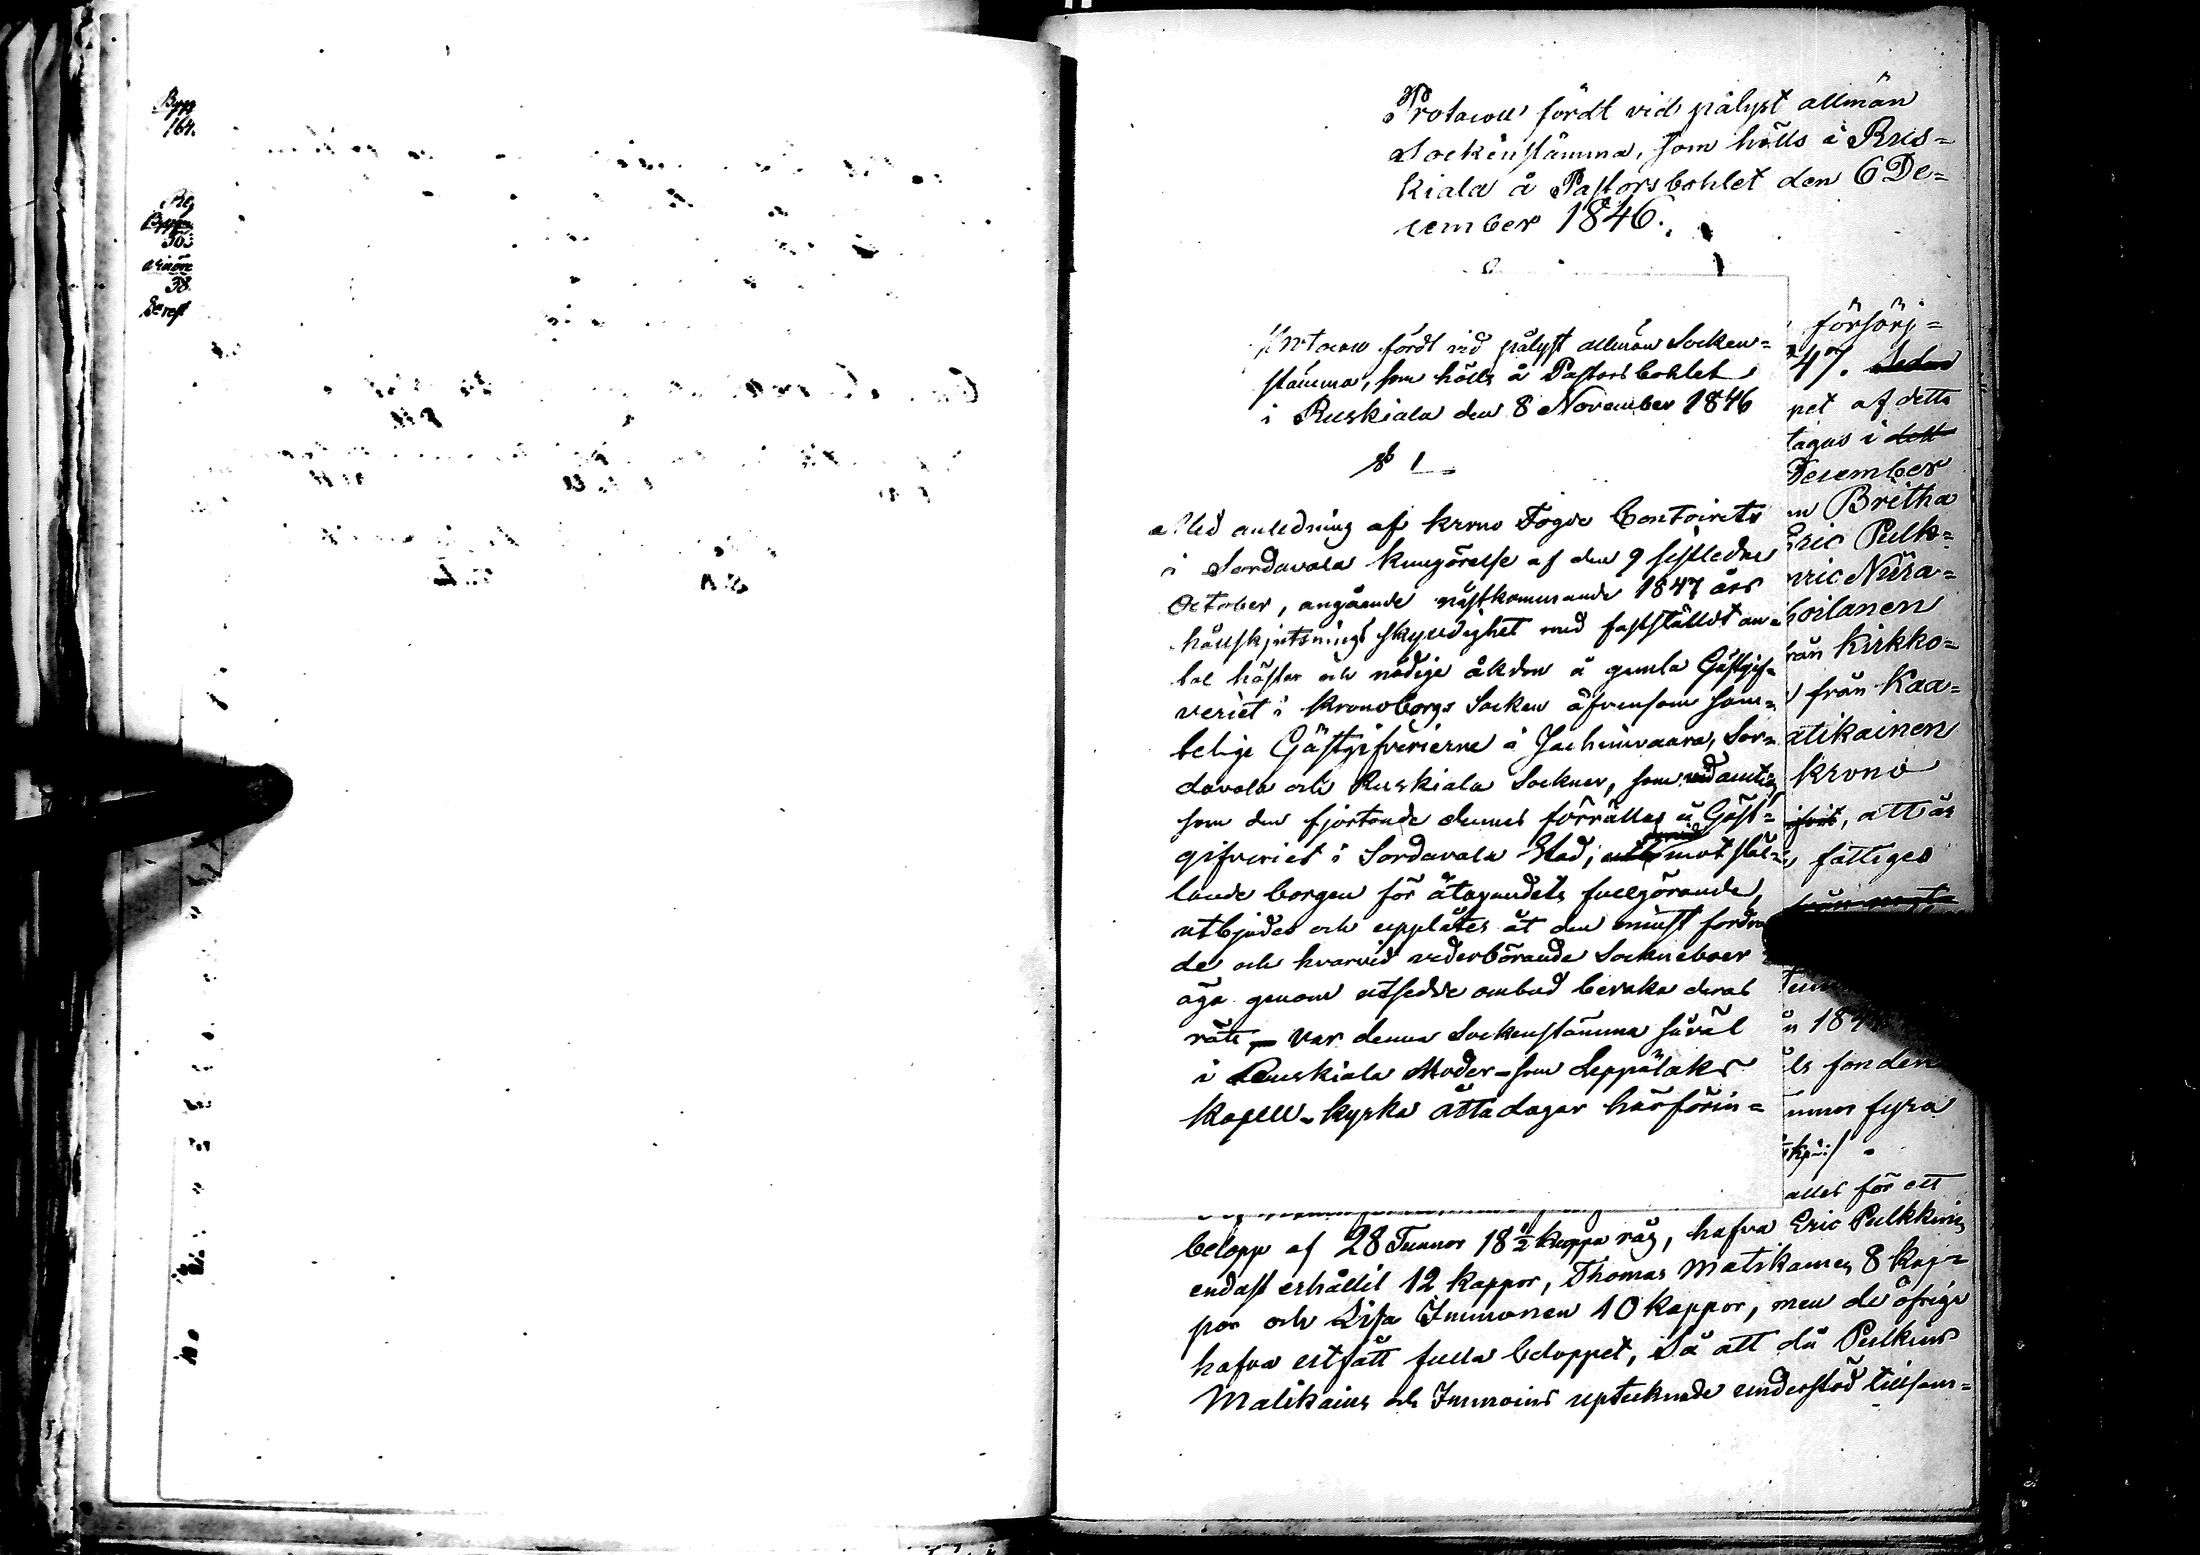 Bygg
164.
50
38
Protocoll fördt vid pålyst allmän
Sockenstämma, som hölls i Rus=
kiala å Pastorsbohlet den 6 De=
cember 1846.
Protocoll fördt vid pålyst allmän Socken=
stämma, som hölls å Pastorsbohlet
i Ruskiala den 8 November 1846
§ 1
Med anledning af Krono Fogde Contoirets
i Sordavala kungörelse af den 9 sistledne
October, angående nästkommande 1847 års
hållskjutsnings skyldighet med faststäldt an=
tal hästar och nödige åkdon å gamla Gästgif=
veriet i Kronoborgs Socken äfvensom sam=
telige Gästgifverierne i Jachimvaara, Sor=
davala och Ruskiala Socknar, som
som den fjortonde dennes förrättas å Gäst=
gifveriet i Sordavala Stad, mot stäl=
lande borgen för åtagandets fullgörande,
utbjudes och upplåtes åt den minst fordran
de och hvarvid vederbörande Sockneboer
äga genom utsedde ombud bevaka deras
rätt – var denna Sockenstämma såväl
i Ruskiala Moder- som Leppälaks
Kapell-kyrka åtta dagar härförin=
försörj=
47.
pet af detta
tagas i dett
December
Britha
Eric Pulk=
ric Nüra=
hoilanen
rån Kirkko=
från Kaa=
atikainen
Krono
, att är
fattiges
n 184
ls fonden
unnor fyra
alles för ett
belopp af 28 Tunnor 18 1/2 kappa råg, hafva Eric Pulkkinen
endast erhållit 12 kappor, Thomas Matikainen 8 kap=
por och Lisa Immonen 10 kappor, men de öfrige
hafva utfått fulla beloppet, Så att då Pulkins
Matikains och Immoins uptecknade understöd tillsam=